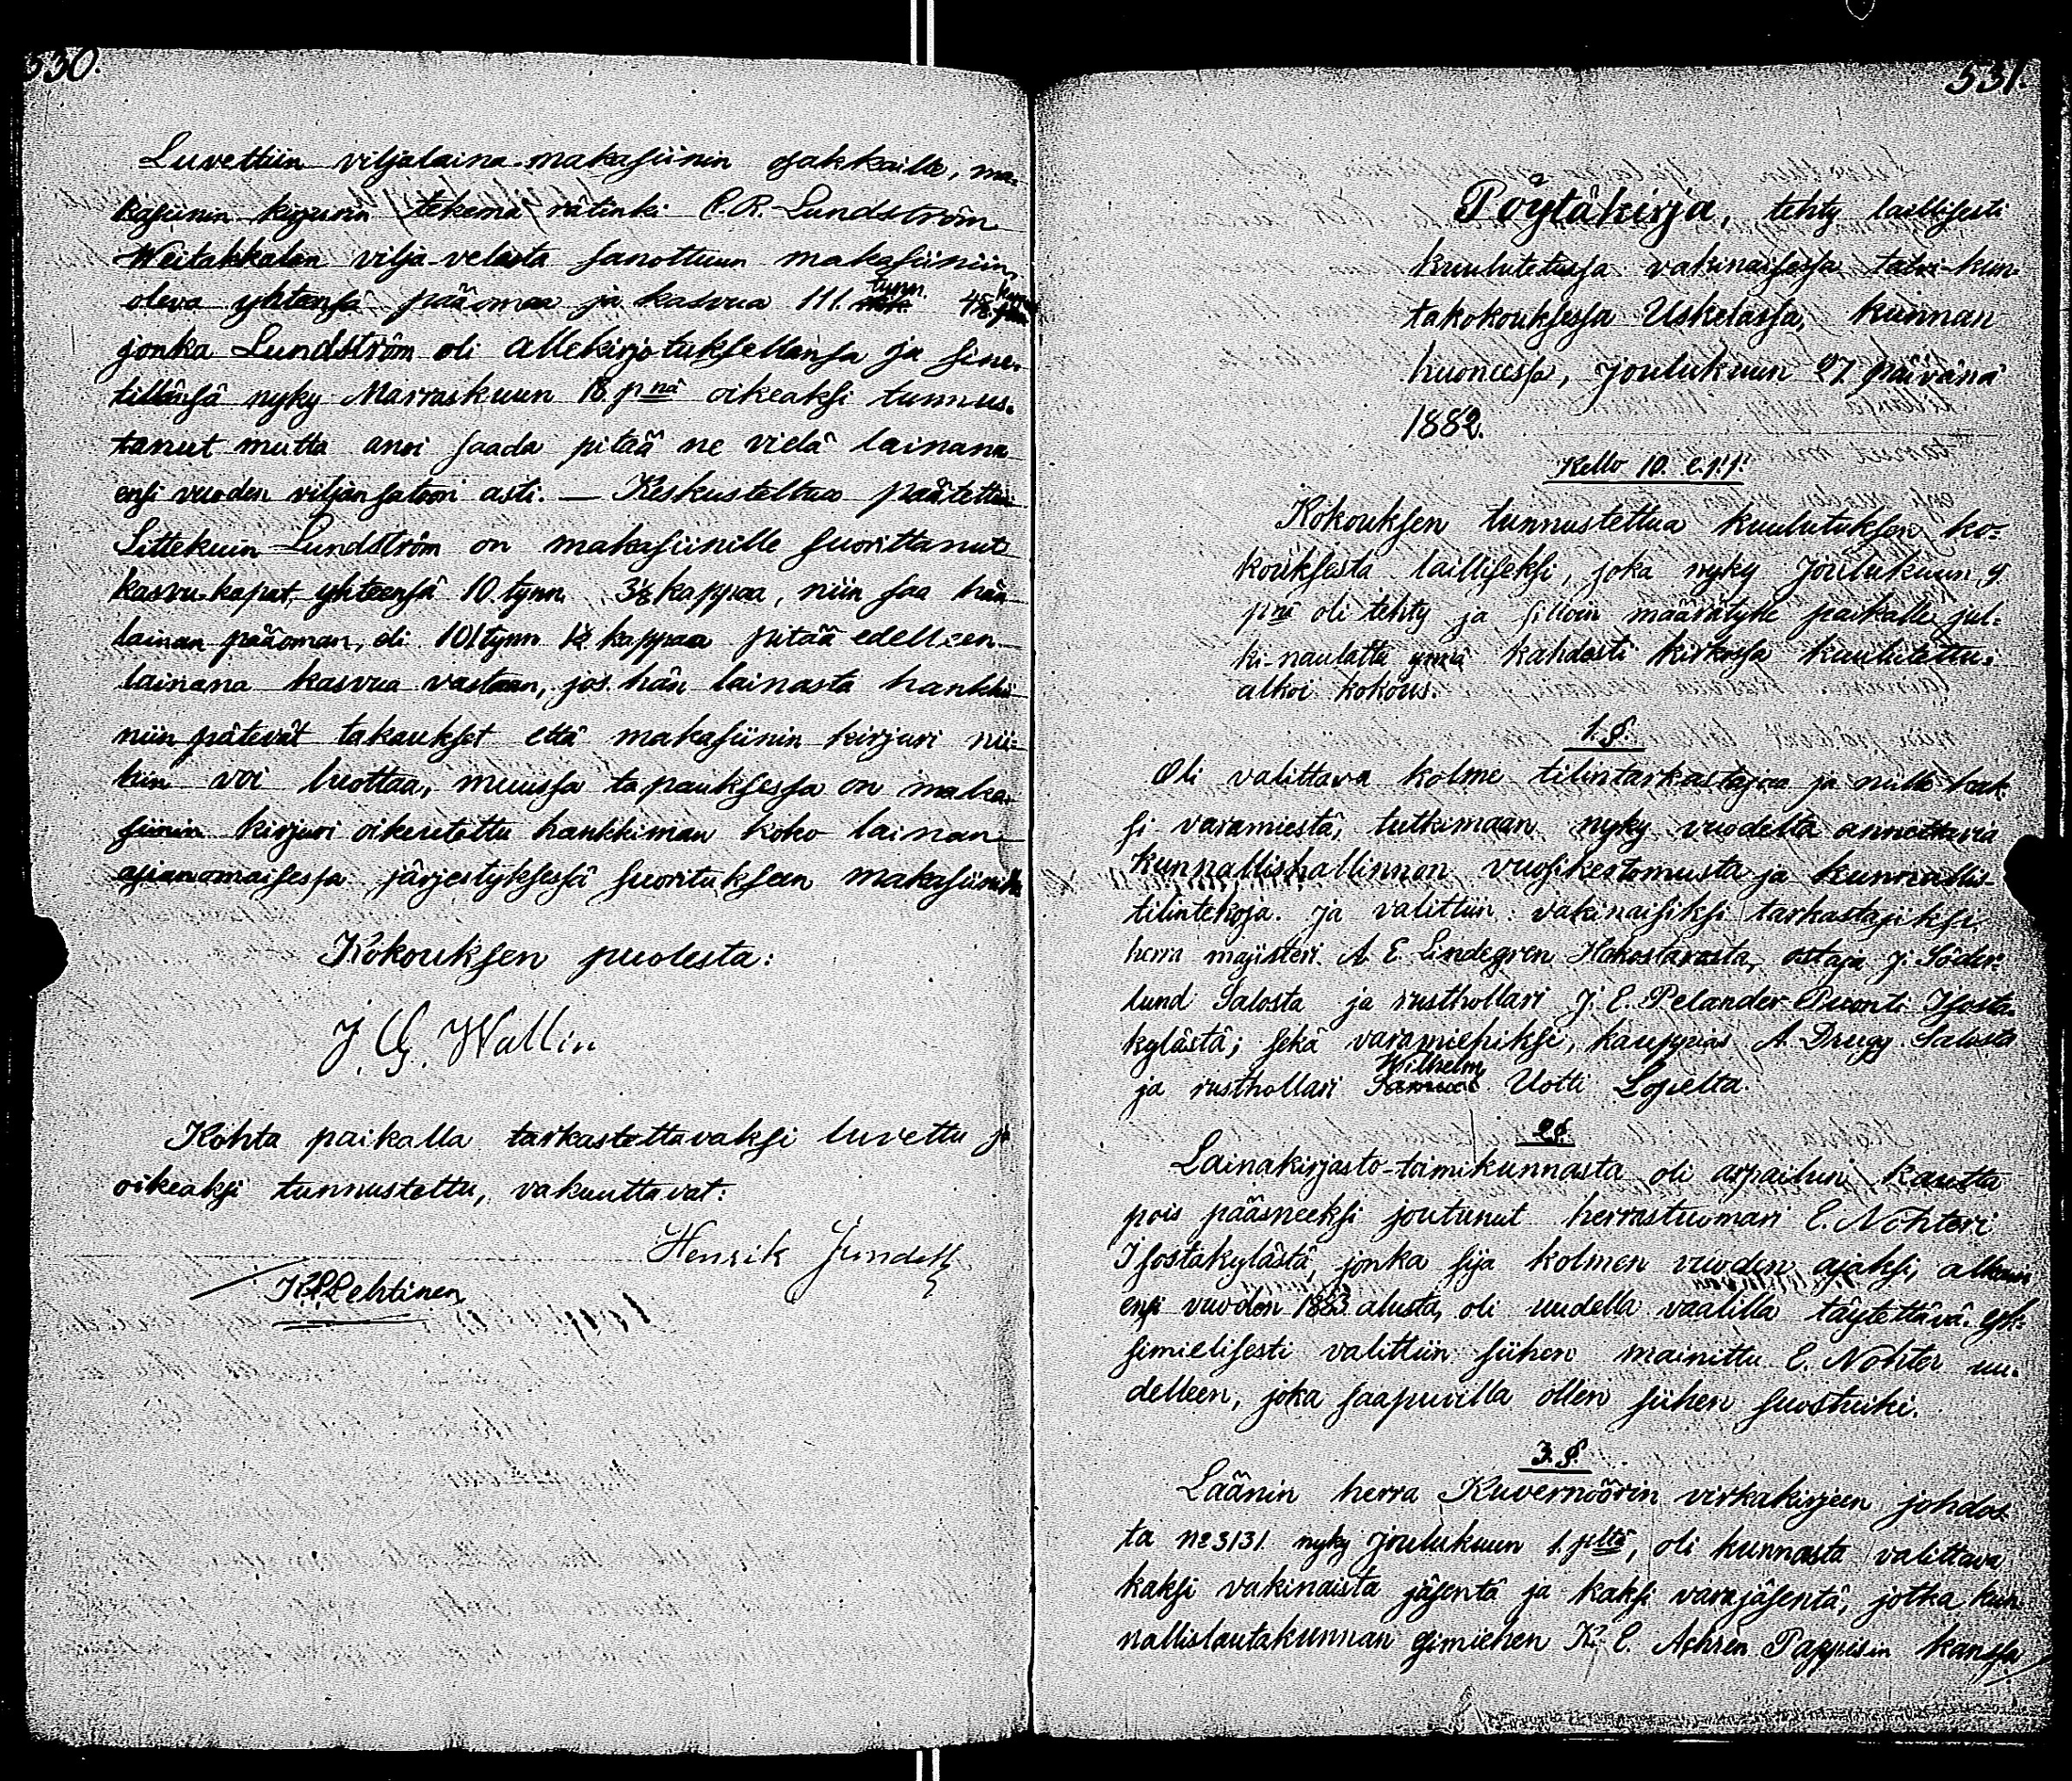 530.
Luvettiin viljalaina-makasiinin osakkaille, ma-
kasiinin kirjurin tekemä rätinki C.R. Lundström
Weitakkalan vilja-velasta sanottuun makasiiniin,
oleva yhteensä pääomaa ja kasvua 111. tynn.
jonka Lundström oli allekirjotuksellansa ja sine-
tillänsä nyky Marraskuun 18. pnä oikeaksi tunnus-
tanut mutta anoi saada pitää ne vielä lainana
ensi vuoden viljan satoon asti. — Keskusteltua päätettiin
Sittekuin Lundström on makasiinille suorittanut
kasvu-kapat, yhteensä 10. tynn. 3⅛ kappaa, niin saa hän
lainan pääoman, eli 101 tynn 1½ kappaa pitää edelleen
lainana kasvua vastaan, jos hän lainasta hankkii
niin pätevät takaukset että makasiinin kirjuri nii-
hin voi luottaa, muussa tapauksessa on maka-
siinin kirjuri oikeutettu hankkimaan koko lainan
asianomaisessa järjestyksessä suoritukseen makasiinille
Kokouksen puolesta:
J. G. Wallin
Kohta paikalla tarkastettavaksi luvettu ja
oikeaksi tunnustettu, vakuuttavat:
Henrik Jundell
Lehtinen
531.
Pöytäkirja, tehty laillisesti
kuulutetussa vakinaisessa talvi-kun-
takokouksessa Uskelassa, kunnan
huoneessa, Joulukuun 27. päivänä
1882.
Kello 10. e.p.p.
Kokouksen tunnustettua kuulutuksen ko-
kouksesta lailliseksi, joka nyky Joulukuun 9
pnä oli tehty ja silloin määrätylle paikalle jul-
ki-naulattu ynnä kahdesti kirkossa kuulutettu;
alkoi kokous.
1. §.
Oli valittava kolme tilintarkastajaa ja niille kak-
si varamiestä, tutkimaan nyky vuodelta annettavia
kunnallishallinnon vuosikertomusta ja kunnallis-
tilintekoja. ja valittiin vakinaisiksi tarkastajiksi
herra majisteri A. E. Lindegren Hakostarosta, ostaja J. Söder-
lund Salosta ja rusthollari J. E. Pelander Isosta-
kylästä; sekä varamiehiksi, kauppias A. Drugg Salosta
ja rusthollari Wilhelm Uotti Lopelta.
2 §.
Lainakirjasto-toimikunnasta oli arpailun kautta
pois pääsneeksi joutunut herrastuomari E. Nohteri
Isostakylästä, jonka sija kolmen vuoden ajaksi, alkaen
ensi vuoden 1883 alusta, oli uudella vaalilla täytettävä. Yk-
simielisesti valittiin siihen mainittu E. Nohter uu-
delleen, joka saapuvilla ollen siihen suostuiki.
3. §.
Läänin herra Kuvernöörin virkakirjeen johdos-
ta no 3131. nyky Joulukuun 1. pltä, oli kunnasta valittava
kaksi vakinaista jäsentä ja kaksi varajäsentä, jotka kun-
nallislautakunnan esimiehen K. E. Achrén Pappisin kanssa